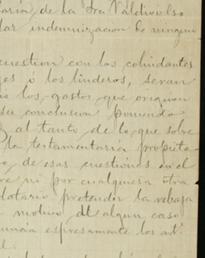 taría, de la Sra Valdivielso
dar indemnizacion de ningun
cuestion con los colindantes
es ó los linderos, seran
los gastos que originen
su conclusion poniendo
al tanto de lo que sobre
la testamentaria propieta
de esas cuestiones en el
ni por cualquiera otra
datario pretender la rebaja
motivo de algun caso
espresamente los art